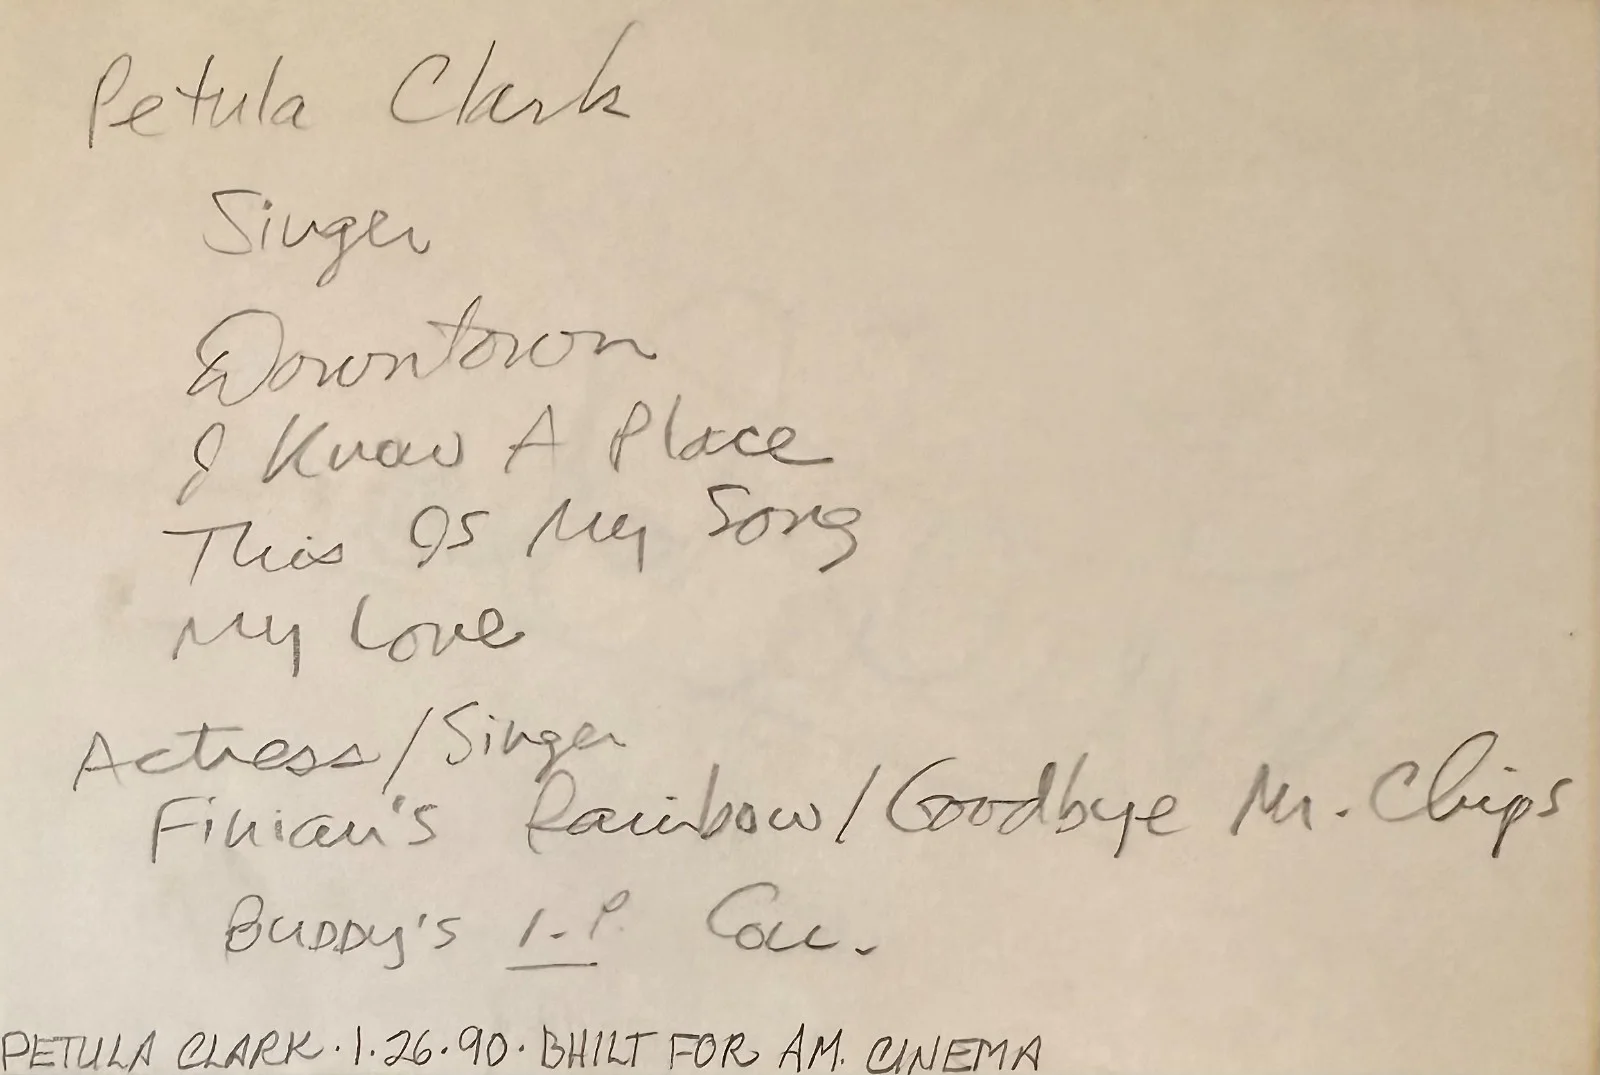 Petula Clark
Singer
Downtown
I Know A Place
This Is My Song
My Love
Actress/Singer
Finian's Rainbow/Goodbye Mr. Chips
Buddy's 1.P.
PETULA CLARK · 1·26·90 · BHILT FOR AM. CINEMA